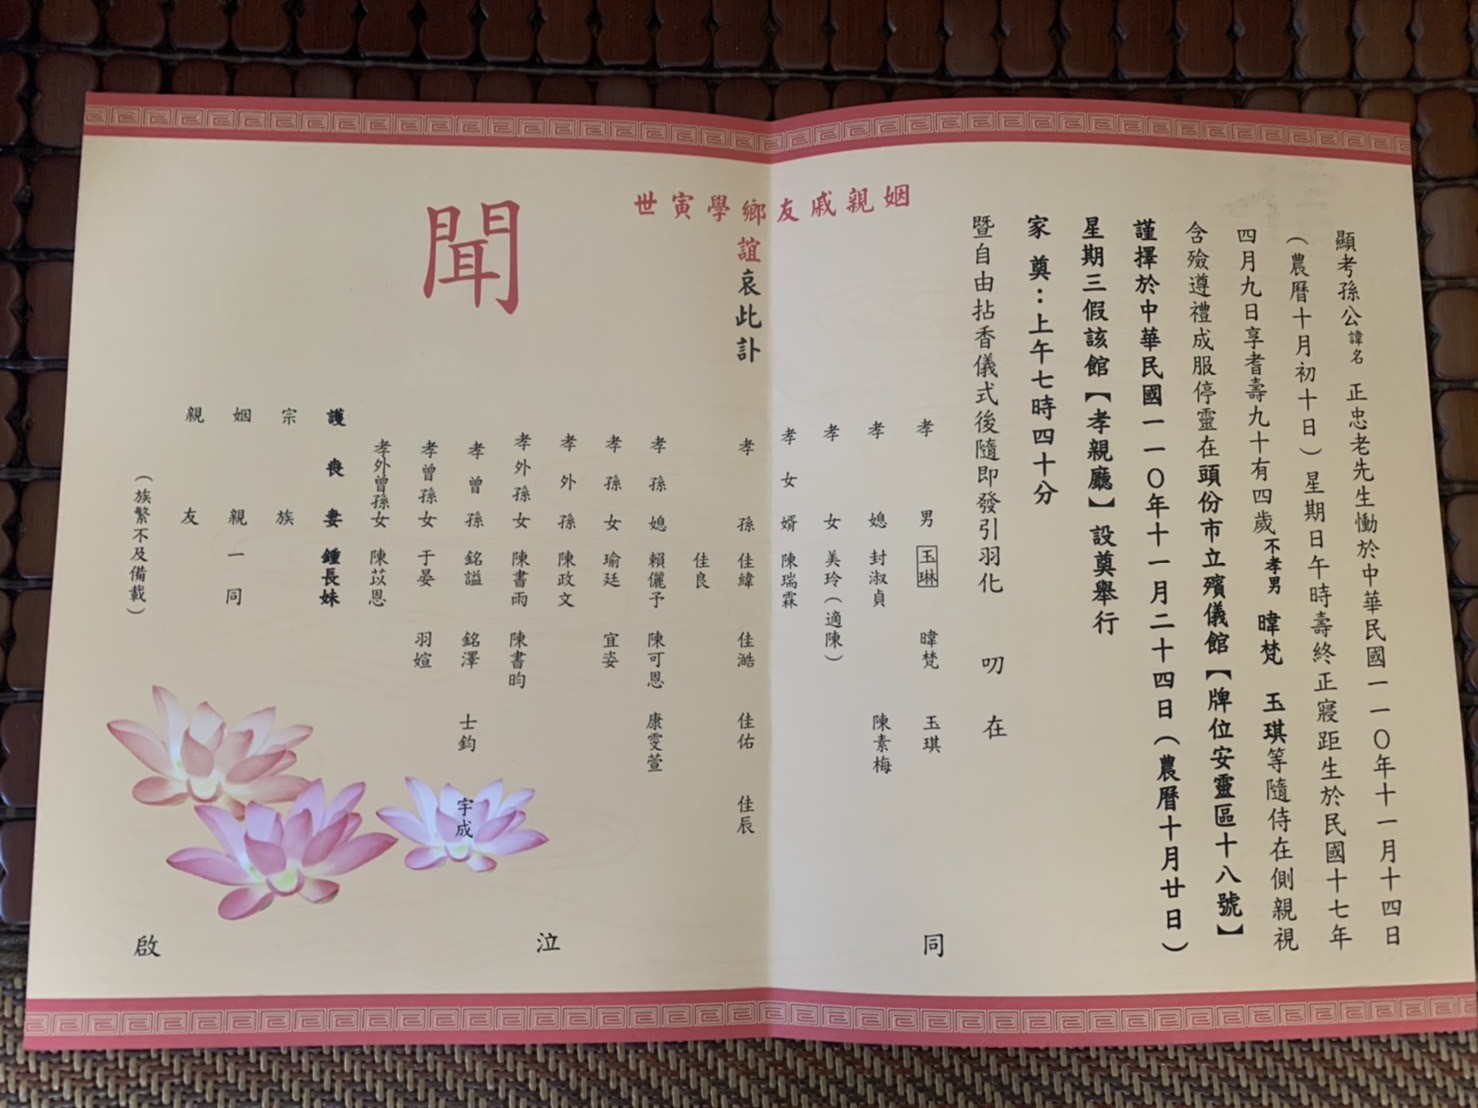 顯考孫公諱名 正忠老先生慟於中華民國一一〇年十一月十四日
（農曆十月初十日）星期日午時壽終正寢距生於民國十七年
四月九日享耆壽九十有四歲不孝男 暐梵 玉琪等隨侍在側親視
含殮遵禮成服停靈在頭份市立殯儀館【牌位安靈區十八號】
謹擇於中華民國一一〇年十一月二十四日（農曆十月廿日）
星期三假該館【孝親廳】設奠舉行
家奠：上午七時四十分
暨自由拈香儀式後隨即發引羽化 叨在
姻親戚友鄉學寅世
誼哀此訃
聞
孝男 玉琳 暐梵 玉琪 同
孝媳 封淑貞 陳素梅
孝女 美玲（適陳）
孝女婿 陳瑞霖
孝孫 佳緯 佳澔 佳佑 佳辰
佳良
孝孫媳 賴儷予 陳可恩 康雯萱
孝孫女 瑜廷 宜姿
孝外孫 陳政文 泣
孝外孫女 陳書雨 陳書昀
孝曾孫 銘謚 銘澤 士鈞 宇成
孝曾孫女 于晏 羽媗
孝外曾孫女 陳苡恩
護喪妻 鍾長妹
宗族
姻親一同
親友
（族繁不及備載） 啟